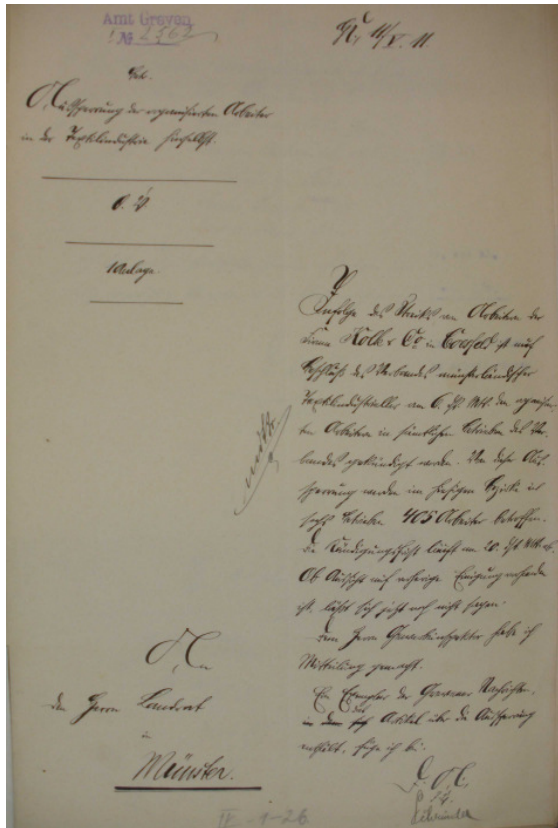 Amt Greven
№ 2562
Gr, 11/V. 11.
Betr.
Aussperrung der organisierten Arbeiter
in der Textilindustrie hierselbst.
O. V.
1 Anlage
Infolge des Streiks von Arbeitern der
Firma Kolk & Co in Coesfeld ist auf
Beschluß des Verbandes münsterländischer
Textilindustrieller am 6. ds. Mts. den organisier-
ten Arbeitern in sämtlichen Betrieben des Ver-
bandes gekündigt worden. Von dieser Aus-
sperrung werden im hiesigen Bezirke in
sechs Betrieben 405 Arbeiter betroffen.
Die Kündigungsfrist läuft am 20. ds. Mts. ab.
Ob Aussicht auf vorherige Einigung vorhanden
ist, läßt sich jetzt noch nicht sagen.
Dem Herrn Gewerbeinspektor habe ich
Mitteilung gemacht.
Ein Exemplar der Grevener Nachrichten,
das Artikel über die Aussperrung
enthält, füge ich bei.
An
den Herrn Landrat
in
Münster.
D. A.
IV-1-26